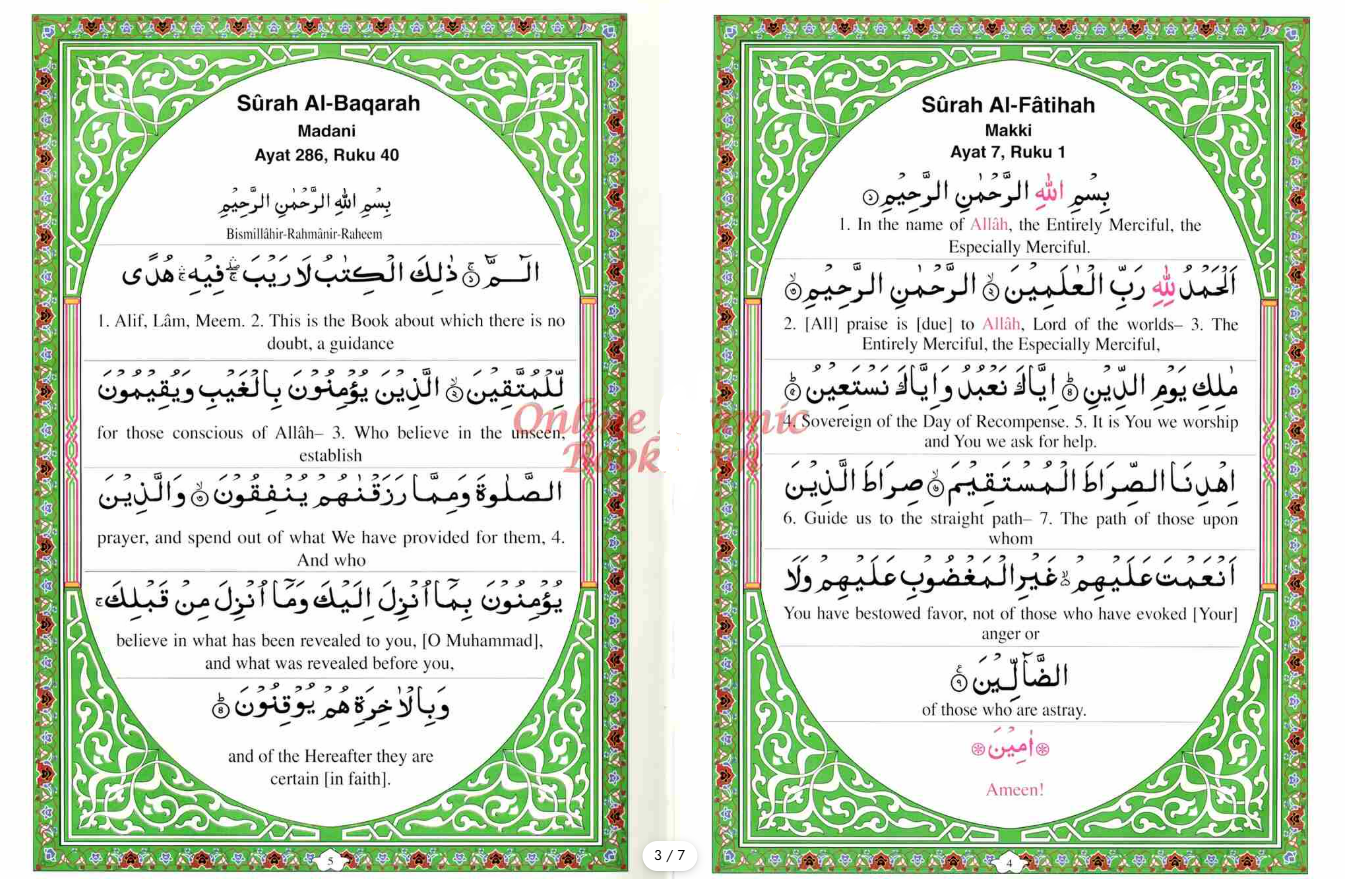 Sûrah Al-Fâtihah
Makki
Ayat 7, Ruku 1
بِسْمِ اللّٰهِ الرَّحْمٰنِ الرَّحِيْمِ ۝١
1. In the name of Allâh, the Entirely Merciful, the
Especially Merciful.
اَلْحَمْدُ لِلّٰهِ رَبِّ الْعٰلَمِيْنَ ۝٢ۙ الرَّحْمٰنِ الرَّحِيْمِ ۝٣ۙ
2. [All] praise is [due] to Allâh, Lord of the worlds– 3. The
Entirely Merciful, the Especially Merciful,
مٰلِكِ يَوْمِ الدِّيْنِ ۝٤ؕ اِيَّاكَ نَعْبُدُ وَاِيَّاكَ نَسْتَعِيْنُ ۝٥ؕ
4. Sovereign of the Day of Recompense. 5. It is You we worship
and You we ask for help.
اِهْدِنَا الصِّرَاطَ الْمُسْتَقِيْمَ ۝٦ۙ صِرَاطَ الَّذِيْنَ
6. Guide us to the straight path– 7. The path of those upon
whom
اَنْعَمْتَ عَلَيْهِمْ ۙ غَيْرِ الْمَغْضُوْبِ عَلَيْهِمْ وَلَا
You have bestowed favor, not of those who have evoked [Your]
anger or
الضَّآلِّيْنَ
of those who are astray.
اٰمِيْنَ
Ameen!
4
Sûrah Al-Baqarah
Madani
Ayat 286, Ruku 40
بِسْمِ اللّٰهِ الرَّحْمٰنِ الرَّحِيْمِ
Bismillâhir-Rahmânir-Raheem
الٓـمّٓ ۝١ۚ ذٰلِكَ الْكِتٰبُ لَا رَيْبَ ۛۖۚ فِيْهِ ۛۚ هُدًى
1. Alif, Lâm, Meem. 2. This is the Book about which there is no
doubt, a guidance
لِّلْمُتَّقِيْنَ ۝٢ۙ الَّذِيْنَ يُؤْمِنُوْنَ بِالْغَيْبِ وَيُقِيْمُوْنَ
for those conscious of Allâh– 3. Who believe in the unseen,
establish
الصَّلٰوةَ وَمِمَّا رَزَقْنٰهُمْ يُنْفِقُوْنَ ۝٣ۙ وَالَّذِيْنَ
prayer, and spend out of what We have provided for them, 4.
And who
يُؤْمِنُوْنَ بِمَآ اُنْزِلَ اِلَيْكَ وَمَآ اُنْزِلَ مِنْ قَبْلِكَ ۚ
believe in what has been revealed to you, [O Muhammad],
and what was revealed before you,
وَبِالْاٰخِرَةِ هُمْ يُوْقِنُوْنَ ۝٤ؕ
and of the Hereafter they are
certain [in faith].
5
Online
Book
3 / 7